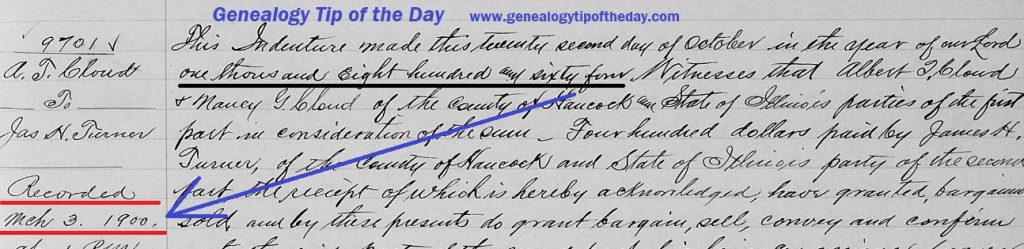 Genealogy Tip of the Day www.genealogytipoftheday.com
9701
A. T. Cloud
To
Jas H. Turner
Recorded
Mch 3. 1900.
This Indenture made this twenty second day of October in the year of our Lord
one thousand Eight hundred and sixty four Witnesses that Albert T. Cloud
& Nancy G. Cloud of the County of Hancock an State of Illinois parties of the first
part in consideration of the sum Four hundred dollars paid by James H.
Turner, of the County of Hancock and State of Illinois party of the second
part the receipt of which is hereby acknowledged, have granted, bargain
sold, and by these presents do grant bargain, sell, convey and confirm